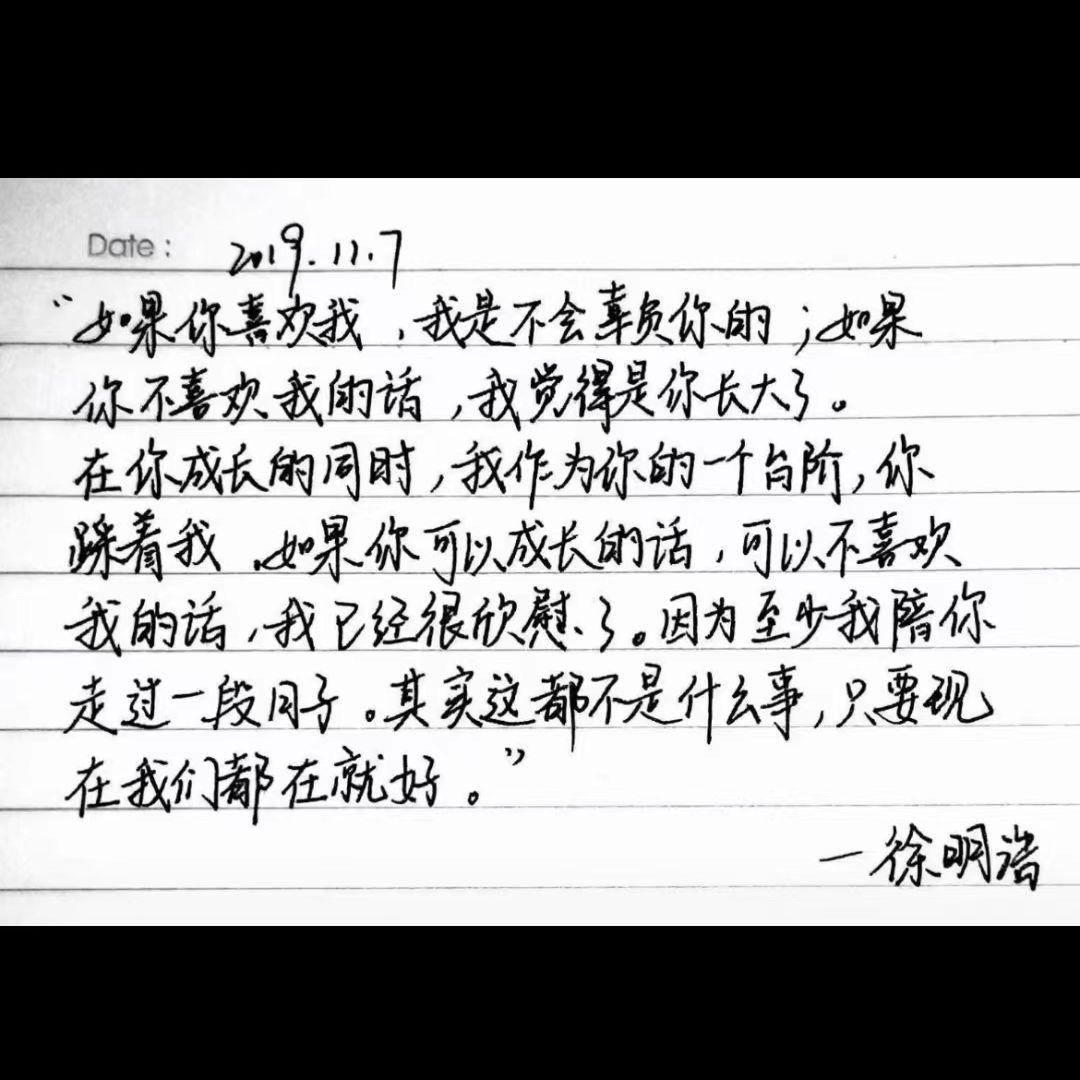 Date: 2019.11.7
“如果你喜欢我，我是不会辜负你的；如果
你不喜欢我的话，我觉得是你长大了。
在你成长的同时，我作为你的一个台阶，你
踩着我.如果你可以成长的话，可以不喜欢
我的话，我已经很欣慰了。因为至少我陪你
走过一段日子。其实这都不是什么事，只要现
在我们都在就好。”
—徐明浩